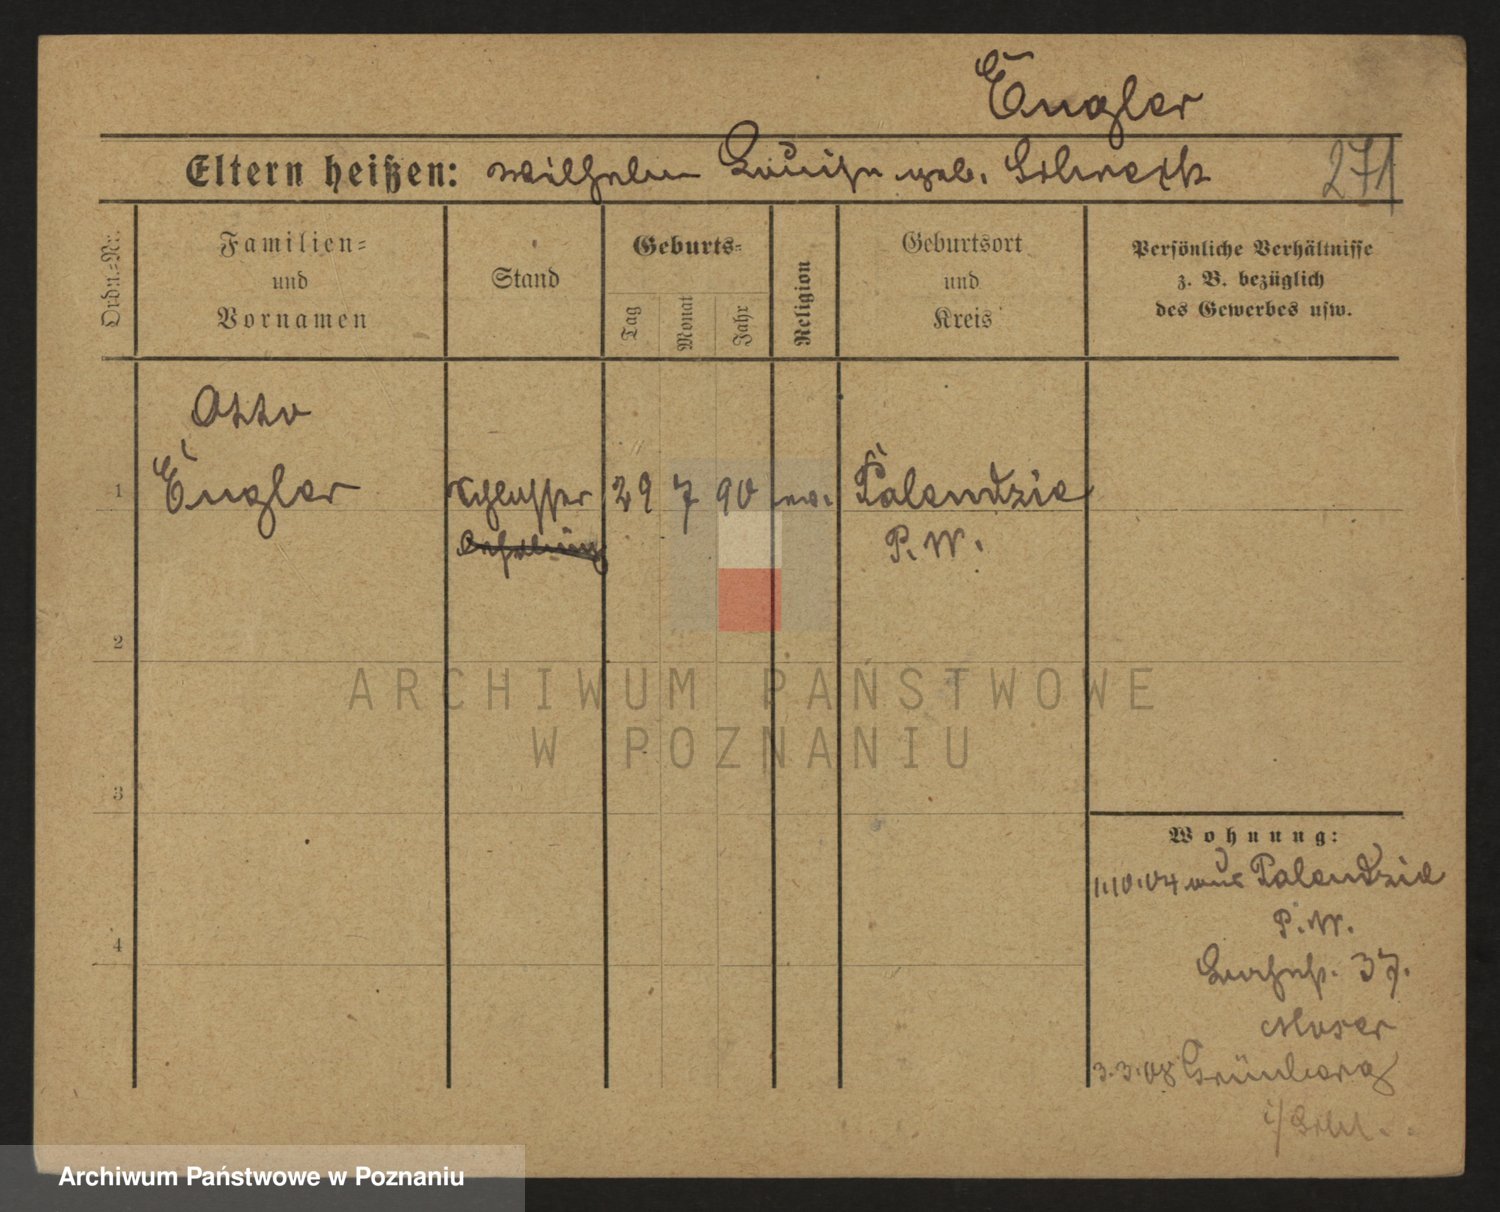 Engler
Eltern heißen: Wilhelm Louise geb. Schreck
271
Ordn.=Nr.
Familien=
und
Vornamen
Stand
Geburts=
Tag
Monat
Jahr
Religion
Geburtsort
und
Kreis
Persönliche Verhältnisse
z. B. bezüglich
des Gewerbes usw.
Otto
1 Engler Schlosser 29 7 90 ev. Palendzie
P. W.
2
3
4
Wohnung:
1.10.04 aus Palendzie
P. W.
37.
Moser
3.3.08 Grünberg
i/Schl.
ARCHIWUM PAŃSTWOWE
W POZNANIU
Archiwum Państwowe w Poznaniu